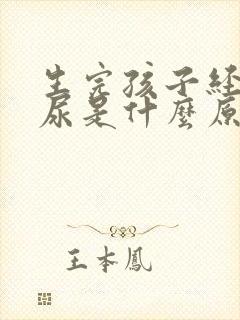 生完孩子经
尿是什麼原
王本鳳